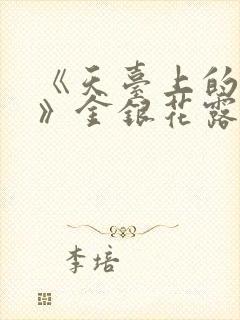 《天臺上的
》金銀花露
李培